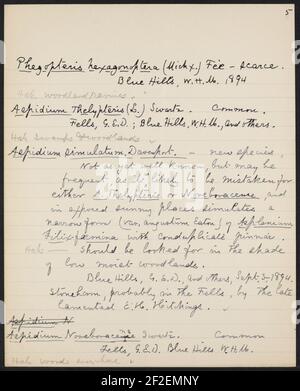 5
Phegopteris hexagonoptera (Michx.) Fée - scarce.
Blue Hills, W.H.M. 1894
Hab. woodland ravines.
Aspidium Thelypteris (L.) Swartz. Common.
Fells, G.E.D.; Blue Hills, W.H.M., and others.
Hab. Swamps & woodlands
Aspidium simulatum, Davenport. - new species,
Not as yet well known, but may be
frequent as likely to be mistaken for
either A. Thelypteris or Noveboracense, and
in exposed sunny places simulates a
narrow form (var. angustum Eaton) of Asplenium
Filix-fœmina with conduplicate pinnae.
Hab. — Should be looked for in the shade
of low moist woodlands.
Blue Hills, G.E.D., and others, Sept. 3-1894.
Stoneham, probably in the Fells, by the late
lamented E. H. Hitchings.
Aspidium N
Aspidium Noveboracense Swartz. Common
Fells, G.E.D. Blue Hills W.H.M.
Hab. woods
alamy
alamy
Image ID: 2F2EMNY
www.alamy.com